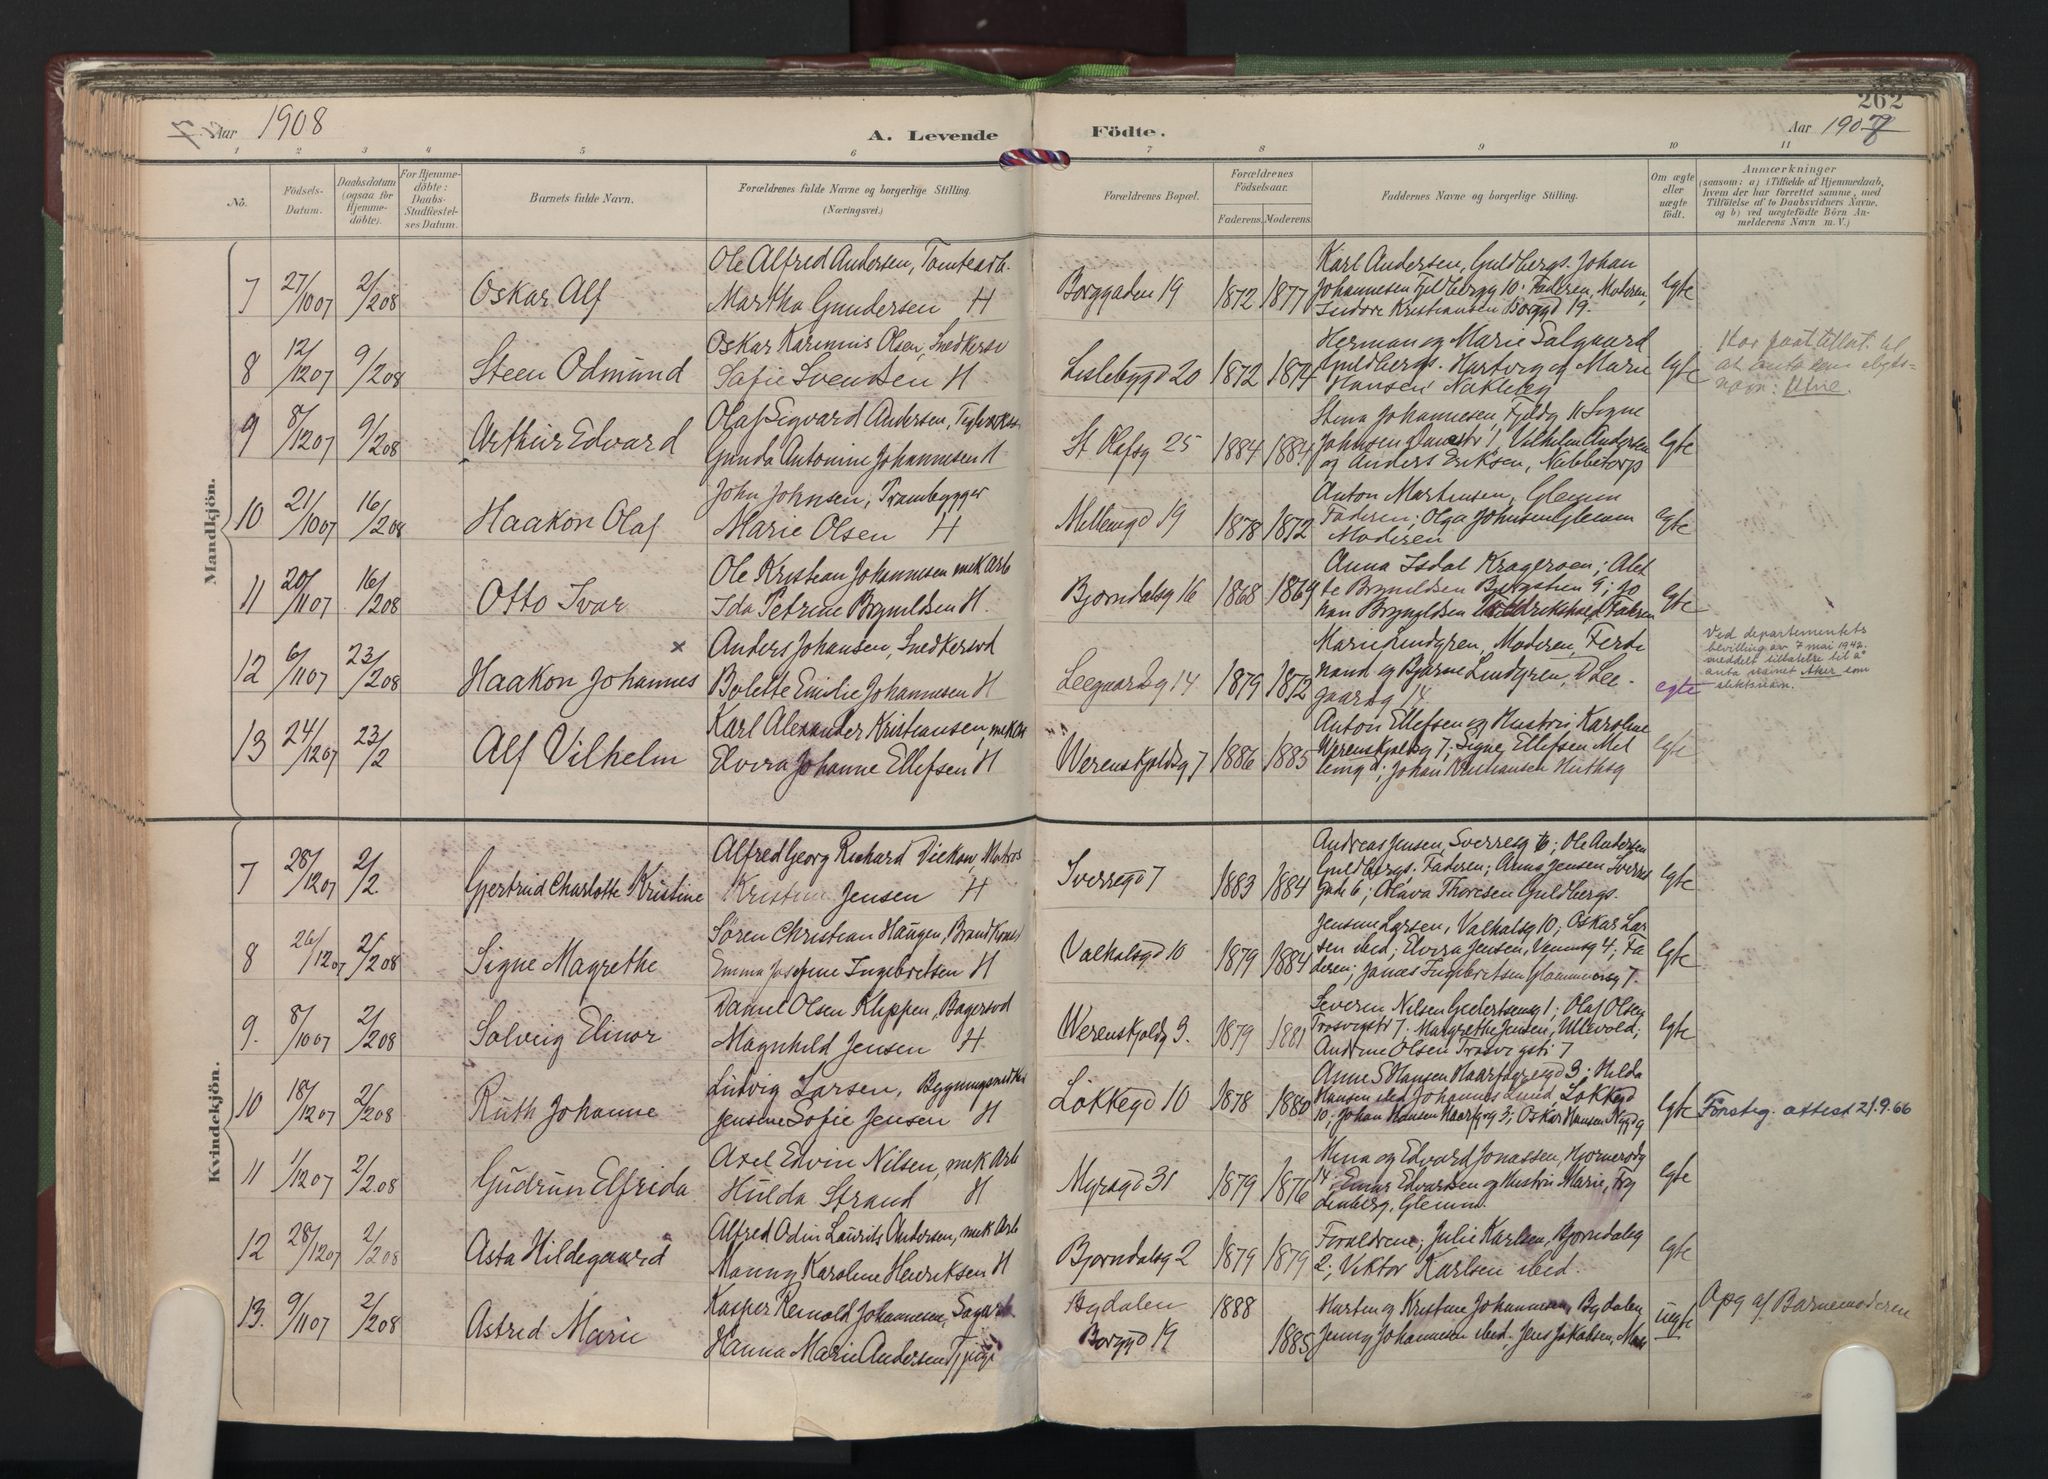 262
Aar 1908
A. Levende Födte.
Aar 1908
1 2 3 4 5 6 7 8 9 10 11
No.
Födsels-Datum.
Daabsdatum (ogsaa for Hjemmedöbte).
For Hjemmedöbte: Daabs-Stadfæstelses Datum.
Barnets fulde Navn.
Forældrenes fulde Navne og borgerlige Stilling. (Næringsvei.)
Forældrenes Bopæl.
Forældrenes Födselsaar.
Faderens. Moderens.
Faddernes Navne og borgerlige Stilling.
Om ægte eller uægte födt.
Anmærkninger
(saasom: a) i Tilfælde af Hjemmedaab, hvem der har forrettet samme, med Tilföielse af to Daabsvidners Navne, og b) ved uegtefödte Börn Anmelderens Navn m. V.)
Mandkjön.
7 27/10 07 2/2 08 Oskar Alf
Ole Alfred Andersen, Tomtearb.
Martha Gundersen H
Borggaden 19 1872 1877
Karl Andersen, Guldbergs. Johan
Johannesen Fjeldbergg 10. Faderen, Moderen,
Indore Kristiansen Borggd 19.
Egte
8 12/12 07 9/2 08 Steen Odmund
Oskar Karinius Olsen, Snedkersv
Sofie Svendsen H
Lislebygd 20 1872 1874
Herman og Marie Salgaard
Guldbergs. Hartvig og Marie
Hansen Nakleby
Egte
navn: Utne.
9 8/12 07 9/2 08 Arthur Edvard
Olaf Sigvard Andersen, Teglverks
Gunda Antonine Johannesen H
St Olafsg 25 1884 1884
Stina Johannesen, Fjeldg 11 Signe
Johnsen 1, Vilhelm Andersen
og Anders Eriksen, Nabbetorp
Egte
10 21/10 07 16/2 08 Haakon Olaf
John Johnsen, Prambygger
Marie Olsen H
Mellemgd 19 1878 1872
Anton Martinsen, Glemm
Faderen; Olga Johnsen Glemm
Moderen
Egte
11 20/11 07 16/2 08 Otto Ivar
Ole Kristian Johannesen mek Arb
Ida Petrine Brynildsen H.
Bjorndalsg 16 1868 1869
Anna Isdal Krageroen; Alet
te Brynildsen Bjergstien 9; Jo
han Brynyldsen Fredrikshald, Faderen
Egte
12 6/11 07 23/2 08 Haakon Johannes
× Anders Johansen, Snedkersvd
Bolette Emilie Johannesen H
Leegaardsg 14 1879 1872
Marie Lindgren, Moderen, Ferdi
nand og Bjarne Lindgren, Lee-
gaardsg 14
egte
Ved departementets
bevilling av 7 mai 1942
meddelt tillatelse til å
anta navnet Aker som
slektsnavn.
13 24/12 07 23/2 Alf Vilhelm
Karl Alexander Kristiansen, mek Arb
Elvira Johanne Ellefsen H
Werenskjoldsg 7 1886 1885
Anton Ellefsen og Hustru Karoline
Werenskjoldsg 7; Signe Ellefsen Mel
lemgd; Johan Kristiansen Huthsg
Egte
Kvindekjön.
7 28/12 07 2/2 Gjertrud Charlotte Kristine
Alfred Georg Richard Dickow, Matros
Kristine Jensen H
Sverregd 7 1883 1884
Andreas Jensen, Sverresg 6; Ole Andersen
Guldbergs. Faderen; Anna Jensen Sverres
gade 6; Olava Thoresen Guldbergs.
Egte
8 26/12 07 2/2 08 Signe Magrethe
Sören Christian Haugen, Brandkonst
Emma Josefine Ingebretsen H
Valhalsgd 10 1879 1884
Jensine Larsen, Valhalsg 10; Oskar Lar
sen ibid; Elvira Jensen, Venusg 4; Fa
deren; James Ingebretsen Glommensg 7.
Egte
9. 8/10 07 2/2 08 Solveig Elinor
Daniel Olsen Klippen, Bagersvd
Magnhild Jensen H
Werenskjoldsg 3. 1879 1881
Severin Nilsen Gjedertsensg 1; Olaf Olsen
Trosvigstr 7. Margrethe Jensen, Ullevold;
Andrine Olsen Trosvigstr 7
Egte
10 18/12 07 2/2 08 Ruth Johanne
Ludvig Larsen, Bygningssnedker
Jensine Sofie Jensen H
Løkkegd 10 1878 1880
Anne S Hansen Haarfagresgd 3; Hilda
Hansen ibid Johannes Lund, Løkkegd
10; Johan Hansen Haarfgrg 3; Oskar Hansen Nygdg
Egte
Forsteg. attest 21.9.66
11 1/12 07 2/2 08 Gudrun Elfrida
Axel Edvin Nilsen, mek Arb
Hulda Strand H
Myragd 31 1879 1876
Mina og Edvard Jonassen, Hjornersdg
14, Einar Edvardsen og Hustru Marie, Fry
denberg, Glemm.
Egte
12 28/12 07 2/2 08 Asta Hildegaard
Alfred Odin Laurits Andersen, mek Arb
Nanny Karoline Henriksen H
Bjorndalsg 2 1879 1879
Foreldrene; Julie Karlsen, Bjorndalsg
2; Viktor Karlsen ibid.
Egte
13. 9/11 07 2/2 08 Astrid Marie
Kasper Reinold Johannesen, Sagarb
Hanna Marie Andersen
Bydalen
Borggd 19
1888
1885
Marten og Kristine Johannesen, Bydalen
Jenny Johannesen ibid, Jens Jakobsen,
uegte
Opg af Barnemoderen